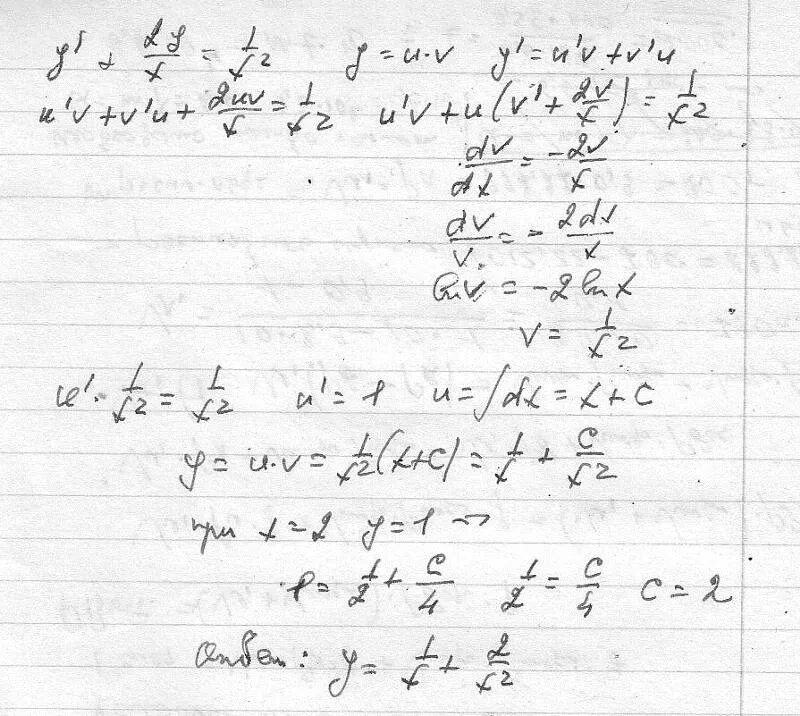 y' + 2y/x = 1/x² y = u·v y' = u'v + v'u
u'v + v'u + 2uv/x = 1/x² u'v + u(v' + 2v/x) = 1/x²
dv/dx = -2v/x
dv/v = -2dx/x
ln v = -2 ln x
v = 1/x²
u' · 1/x² = 1/x² u' = 1 u = ∫dx = x + C
y = u·v = 1/x² (x+C) = 1/x + C/x²
при x = 2 y = 1 →
1 = 1/2 + C/4 1/2 = C/4 C = 2
Ответ: y = 1/x + 2/x²